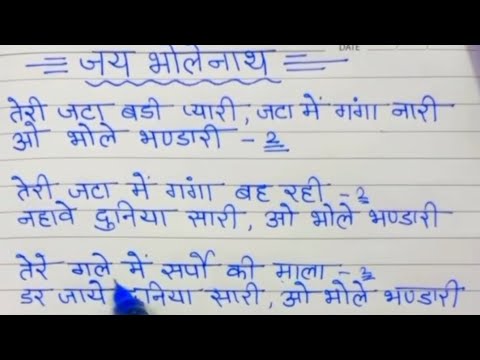 जय भोलेनाथ
DATE
तेरी जटा बडी प्यारी, जटा में गंगा नारी
ओ भोले भण्डारी - 2
तेरी जटा में गंगा बह रही - 2
नहावे दुनिया सारी, ओ भोले भण्डारी
तेरे गले में सर्पो की माला - 2
डर जाये दुनिया सारी, ओ भोले भण्डारी